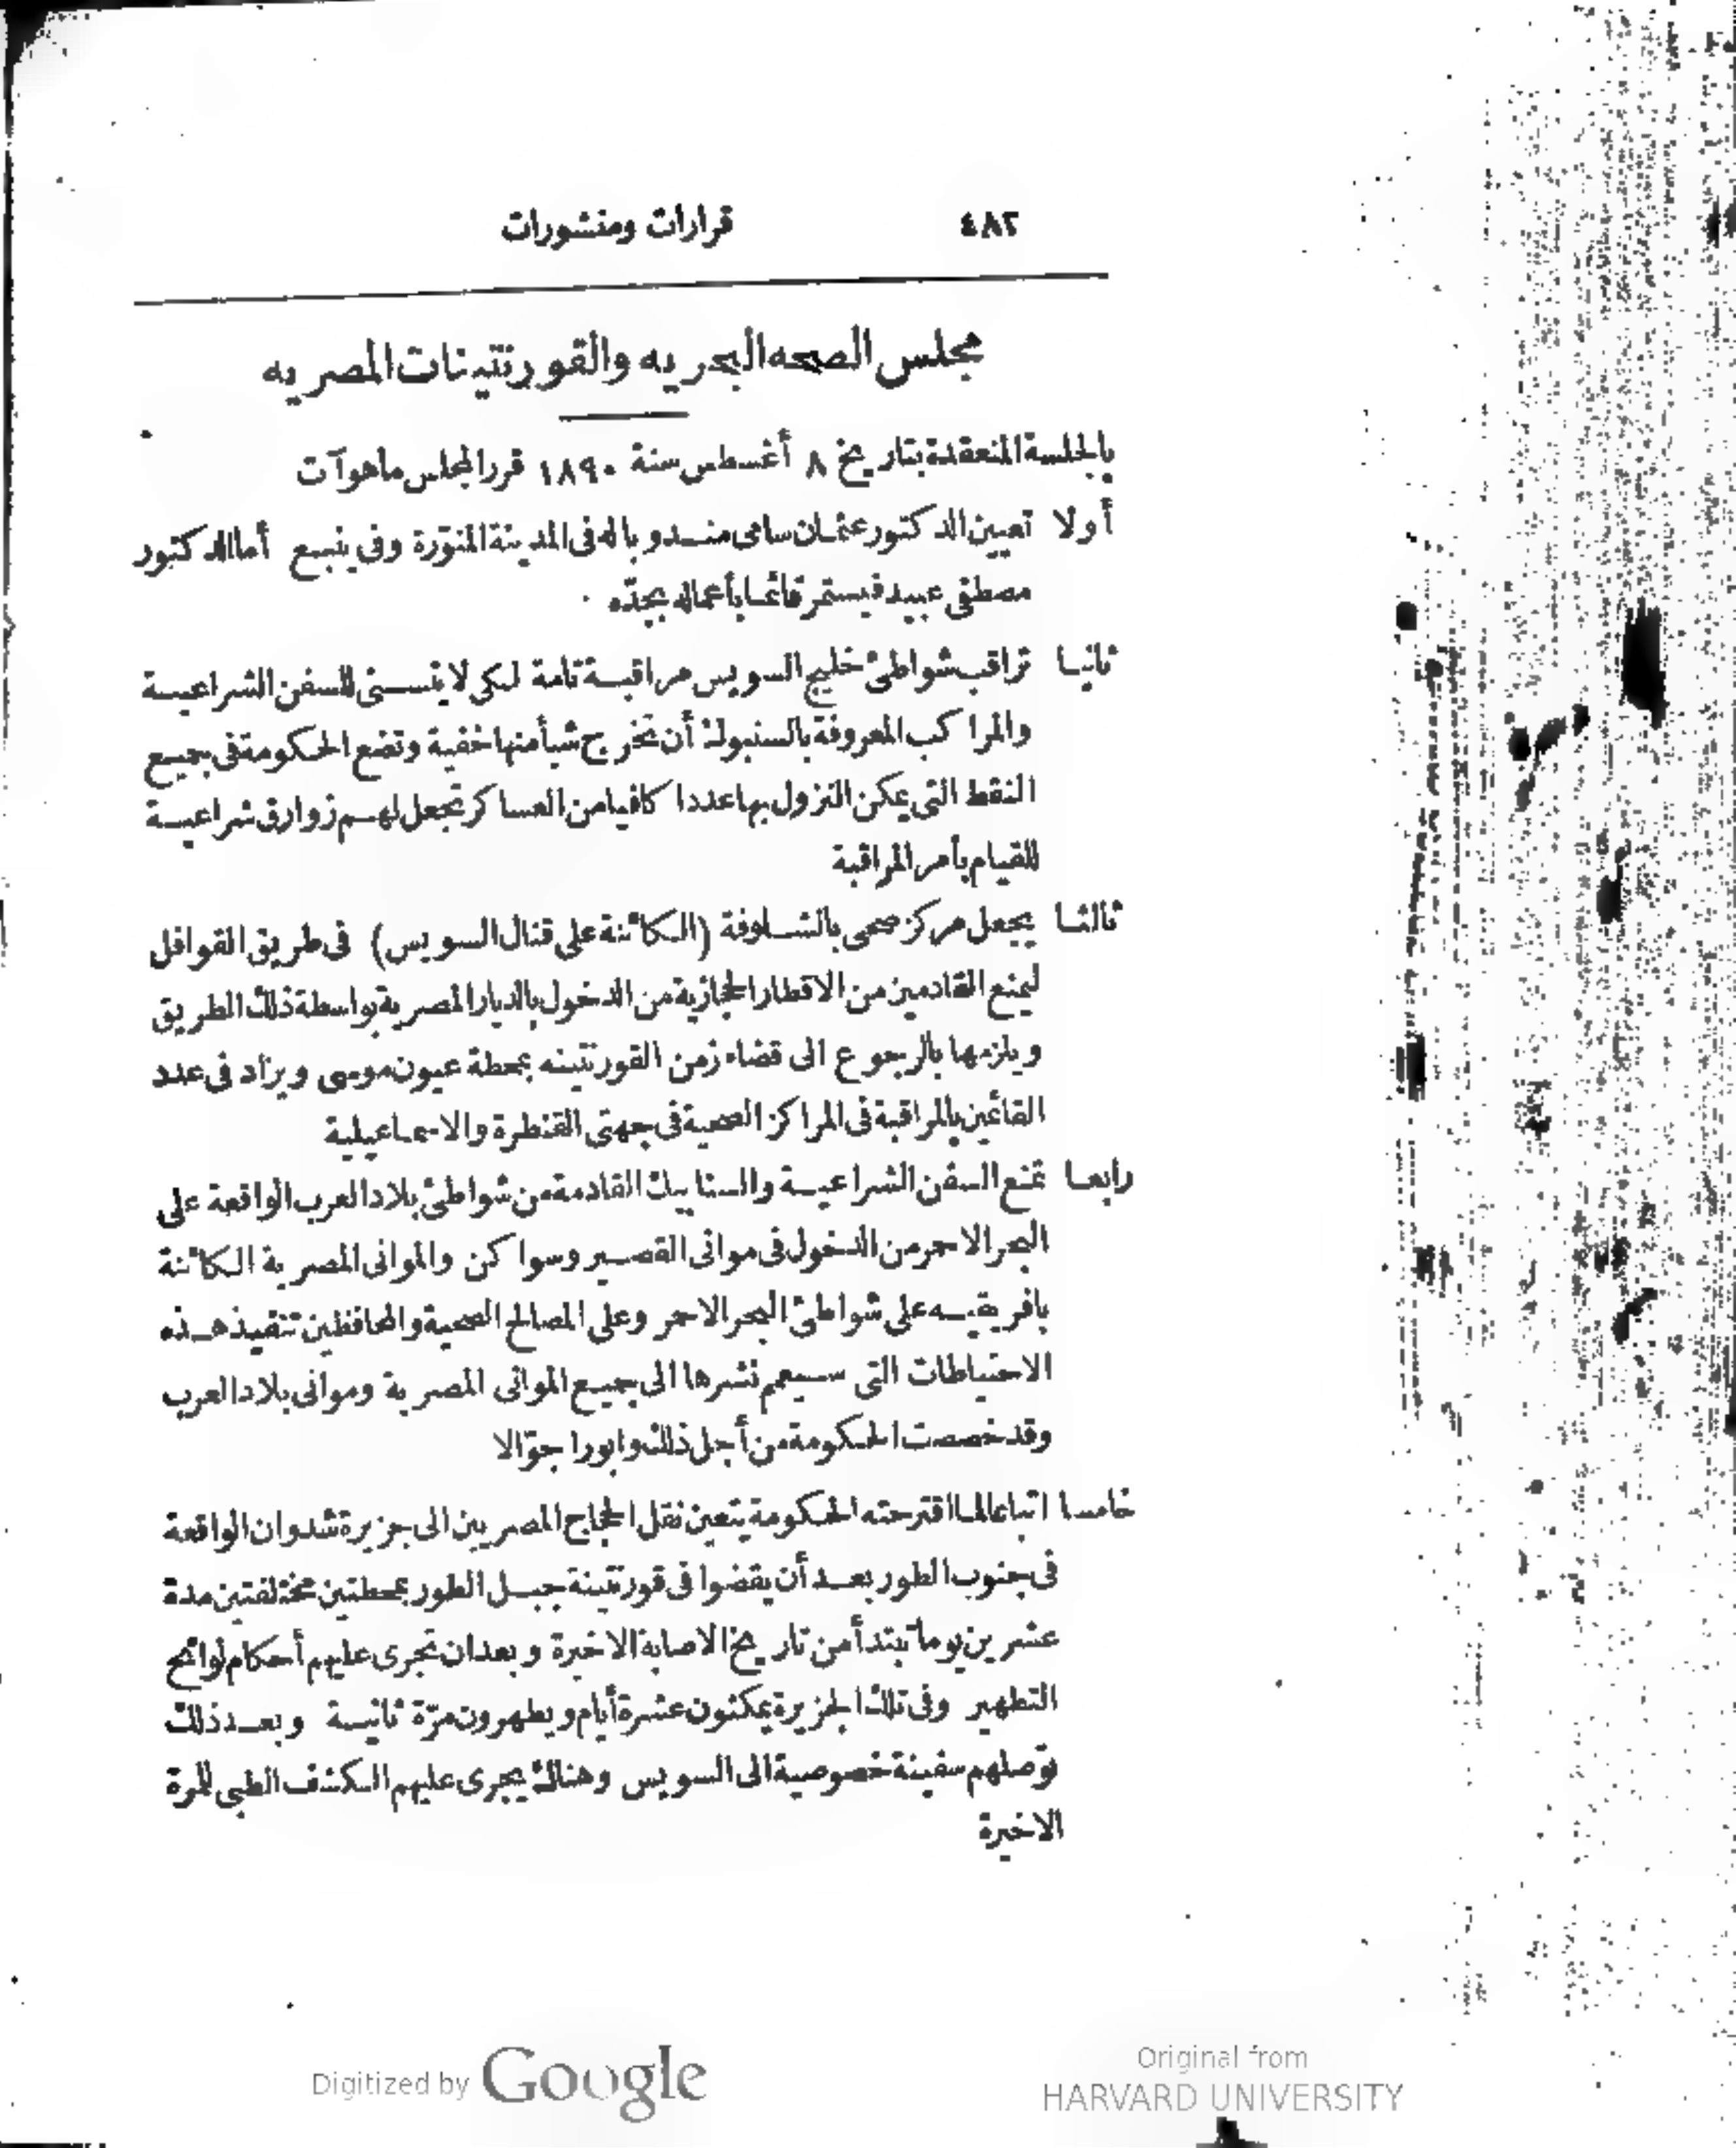 ٤٨٢ قرارات ومنشورات
مجلس الصحه البحريه والقورنتينات المصريه
بالجلسة المنعقدة بتاريخ ٨ أغسطس سنة ١٨٩٠ قرر المجلس ما هو آت
أولا تعيين الدكتور عثمان سامى مندوبا له فى المدينة المنوّرة وفى ينبع أما الدكتور
مصطفى عبيد فيستمر قائما بأعماله بجدّه
ثانيا تراقب شواطئ خليج السويس مراقبة تامة لكى لا يتسنى للسفن الشراعية
والمراكب المعروفة بالسنبوك أن تخرج شيأ منها خفية وتضع الحكومة فى جميع
النقط التى يمكن النزول بها عددا كافيا من العساكر تجعل لهم زوارق شراعية
للقيام بأمر المراقبة
ثالثا يجعل مركز صحى بالشلوفة (الكائنة على قنال السويس) فى طريق القوافل
ليمنع القادمين من الاقطار الحجازية من الدخول بالديار المصرية بواسطة ذلك الطريق
ويلزمها بالرجوع الى قضاء زمن القورنتينه بمحطة عيون موسى ويزاد فى عدد
القائمين بالمراقبة فى المراكز الصحية فى جهتى القنطرة والاسماعيلية
رابعا تمنع السفن الشراعية والسنابيك القادمة من شواطئ بلاد العرب الواقعة على
البحر الاحمر من الدخول فى موانى القصير وسواكن والموانى المصرية الكائنة
بافريقيه على شواطئ البحر الاحمر وعلى المصالح الصحية والمحافظين تنفيذ هذه
الاحتياطات التى سيعمم نشرها الى جميع الموانى المصرية وموانى بلاد العرب
وقد خصصت الحكومة من أجل ذلك وابورا جوّالا
خامسا اتباعا لما اقترحته الحكومة يتعين نقل الحجاج المصريين الى جزيرة شدوان الواقعة
فى جنوب الطور بعد أن يقضوا فى قورنتينة جبل الطور بمحطتين مختلفتين مدة
عشرين يوما تبتدأ من تاريخ الاصابة الاخيرة وبعد ان تجرى عليهم أحكام لوائح
التطهير وفى تلك الجزيرة يمكثون عشرة أيام ويطهرون مرّة ثانية وبعد ذلك
توصلهم سفينة خصوصية الى السويس وهناك يجرى عليهم الكشف الطبى للمرة
الاخيرة
Digitized by Google
Original from
HARVARD UNIVERSITY